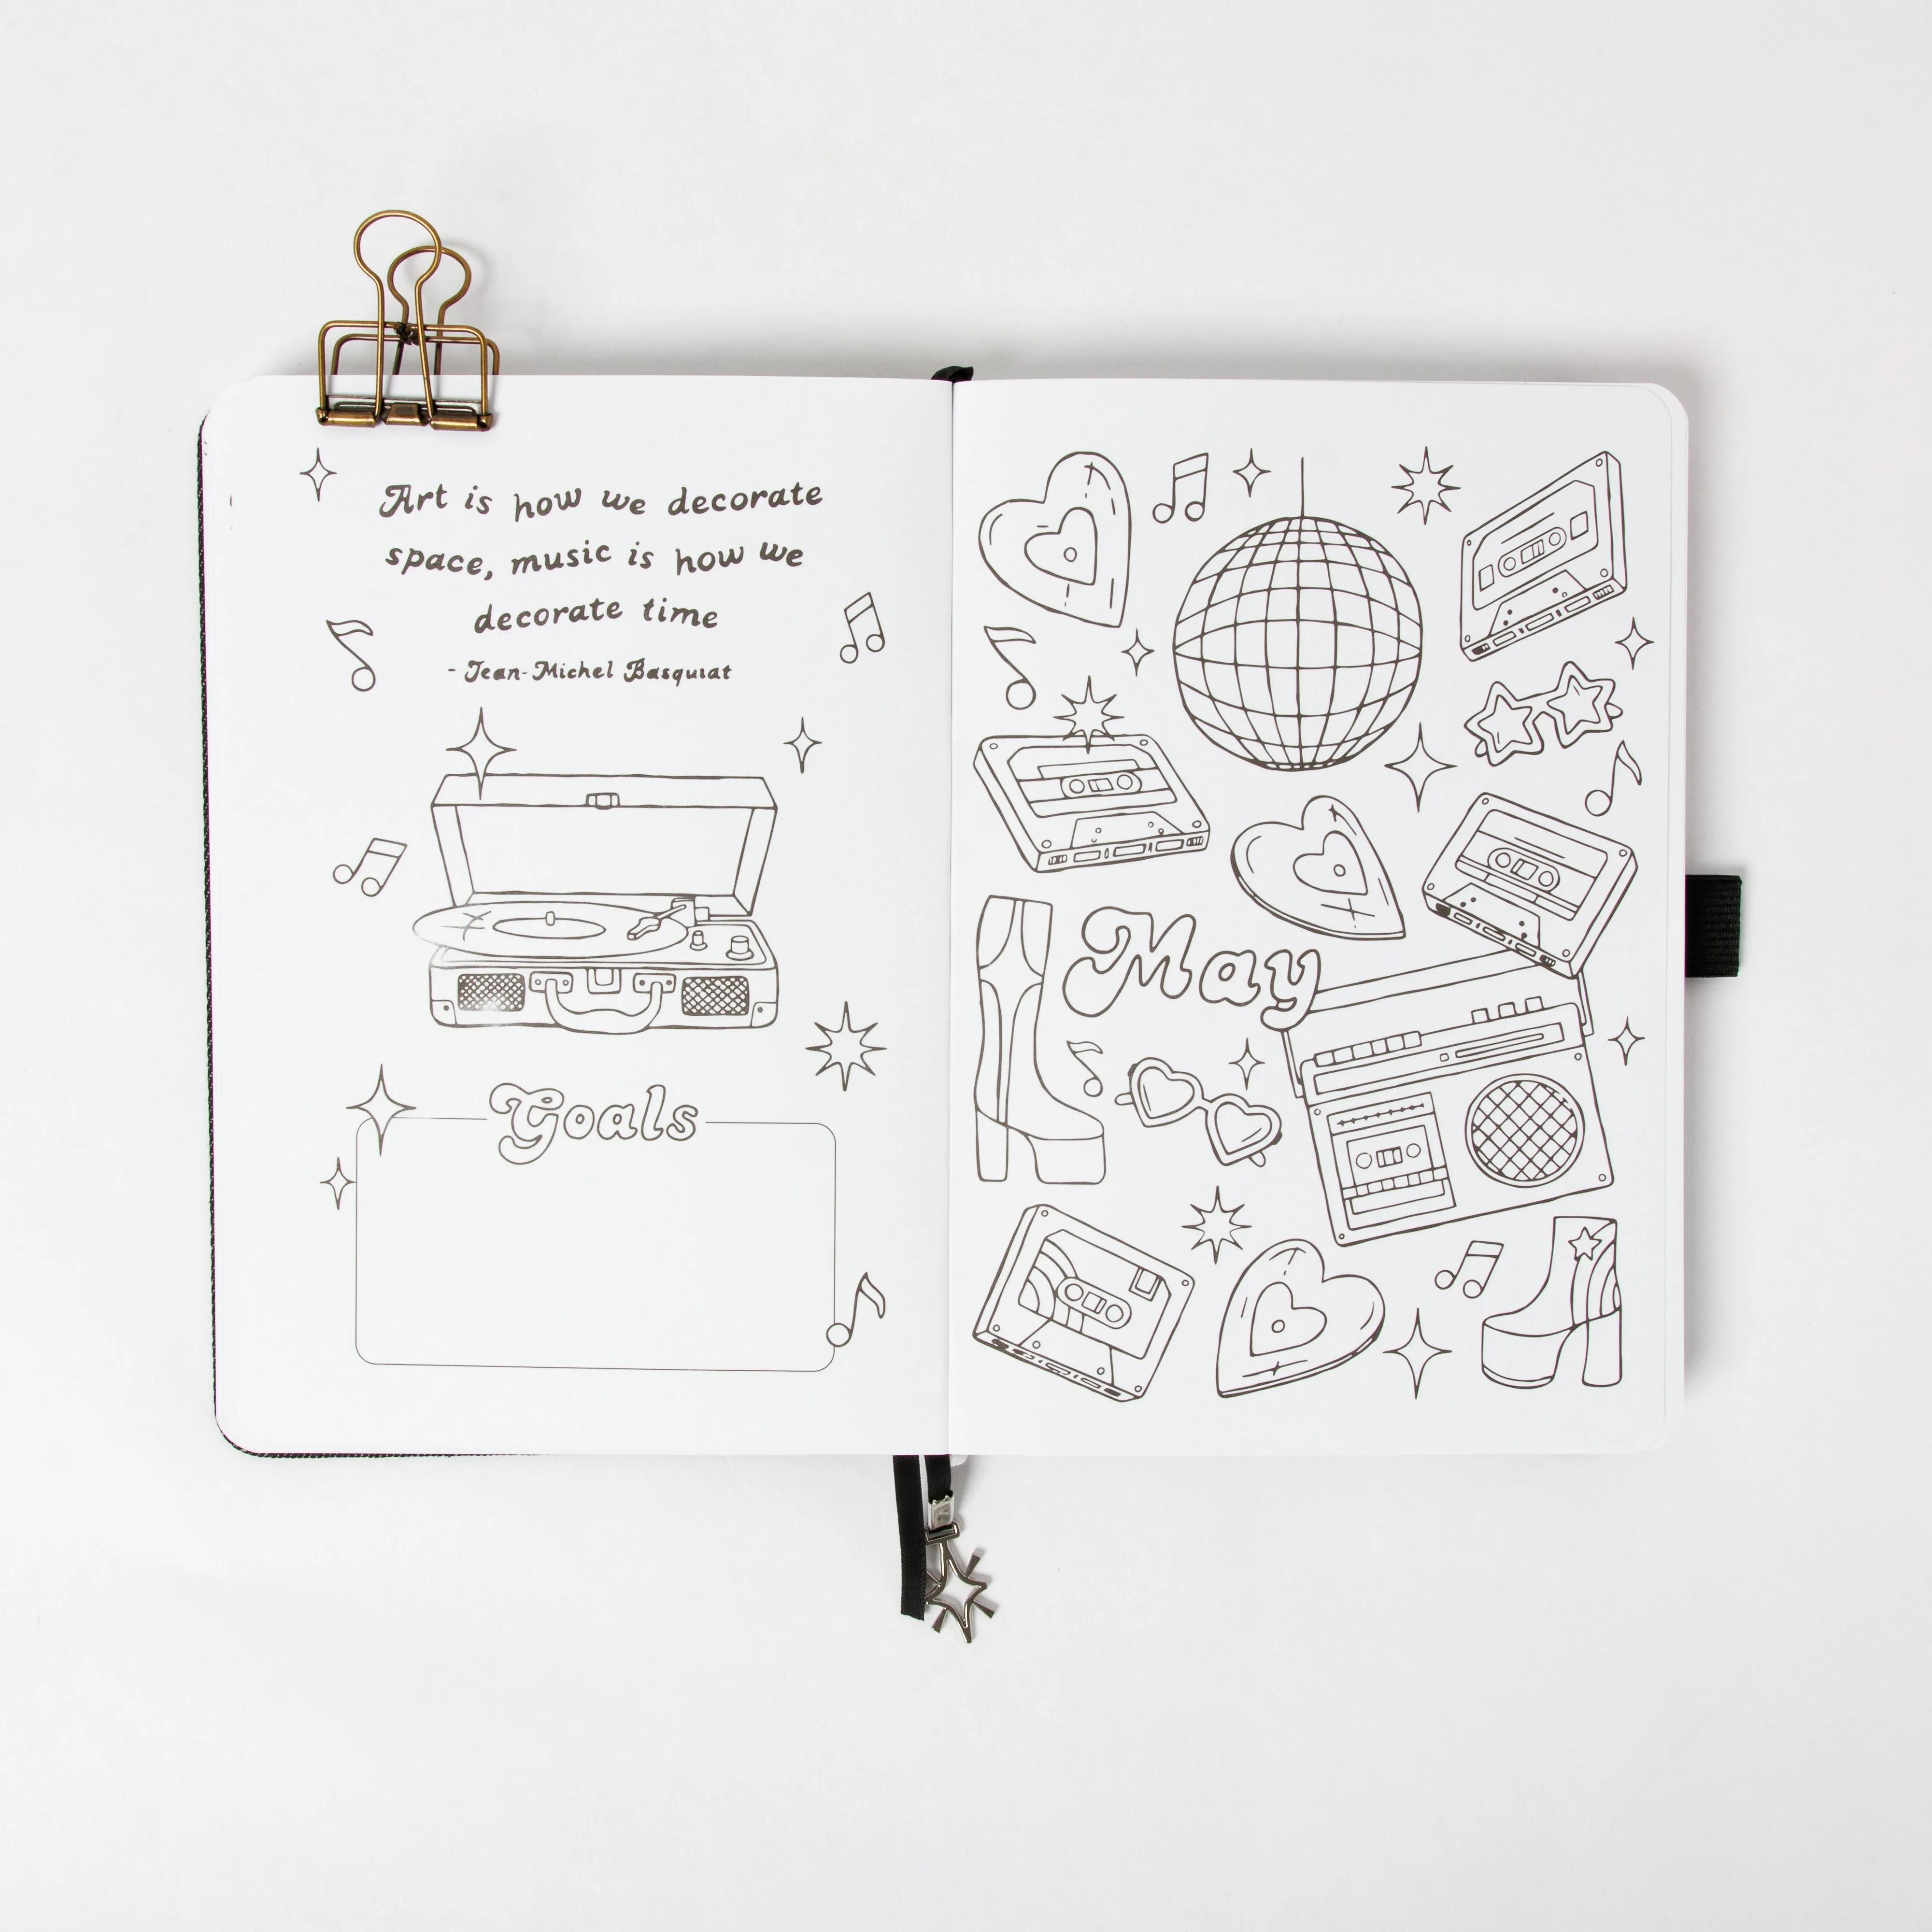 Art is how we decorate
space, music is how we
decorate time
- Jean-Michel Basquiat
Goals
May